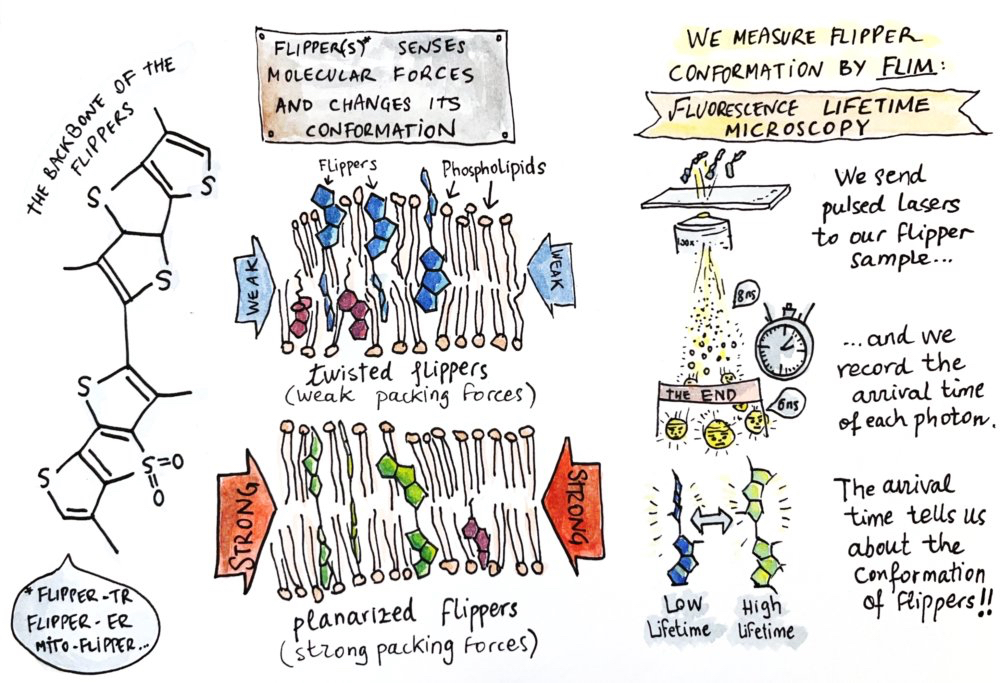 THE BACKBONE OF THE
FLIPPERS
S
S
S
S
S
S=O
O
* FLIPPER-TR
FLIPPER-ER
MITO-FLIPPER...
FLIPPER(S)* SENSES
MOLECULAR FORCES
AND CHANGES ITS
CONFORMATION
Flippers
Phospholipids
WEAK
WEAK
twisted flippers
(weak packing forces)
STRONG
STRONG
planarized flippers
(strong packing forces)
WE MEASURE FLIPPER
CONFORMATION BY FLIM:
FLUORESCENCE LIFETIME
MICROSCOPY
We send
pulsed lasers
to our flipper
sample...
8ns
...and we
record the
arrival time
of each photon.
THE END
6ns
The arrival
time tells us
about the
conformation
of flippers!!
Low
Lifetime
High
lifetime